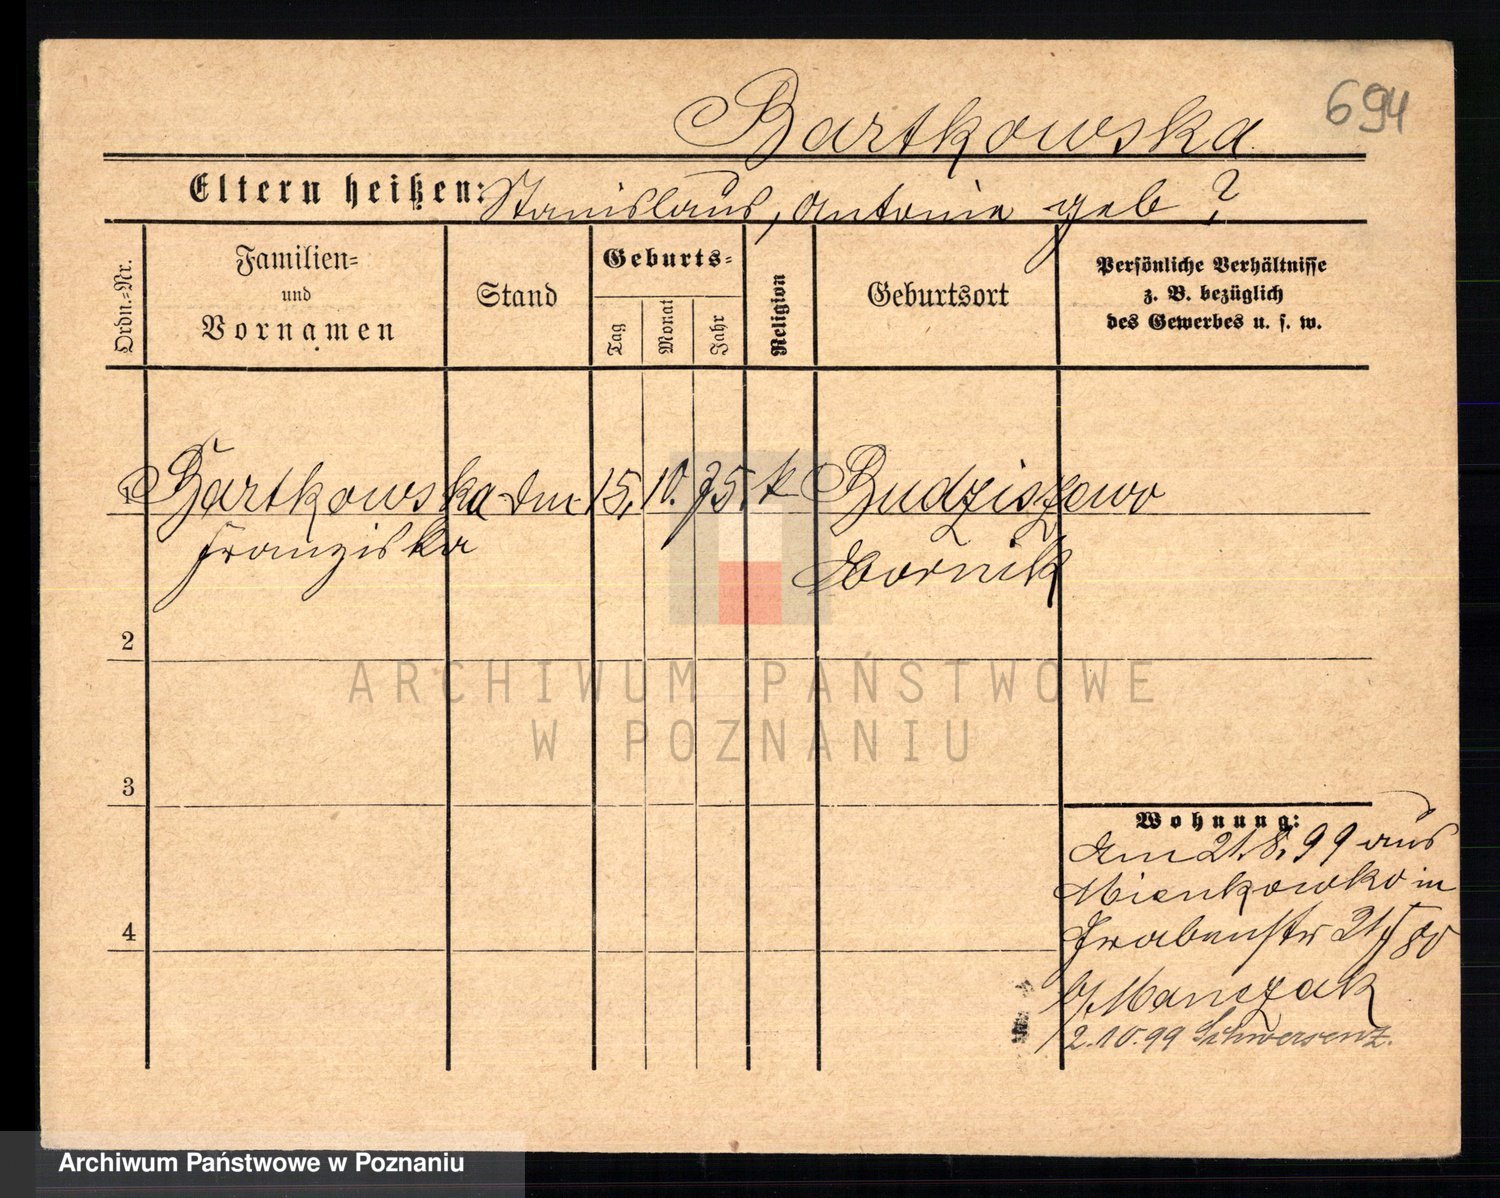 694
Bartkowska
Eltern heißen: Stanislaus, Antonie geb ?
Ordn.=Nr.
Familien=
und
Vornamen
Stand
Geburts=
Tag
Monat
Jahr
Religion
Geburtsort
Persönliche Verhältnisse
z. B. bezüglich
des Gewerbes u. s. w.
1 Bartkowska Dm 15. 10. 75. k Budziszewo
Franziska Obornik
2
ARCHIWUM PAŃSTWOWE
W POZNANIU
3
Wohnung:
Am 21.8.99 aus
Mienkowko in
Grabenstr 21
4
b/ Manczak
2.10.99 Schwersenz.
Archiwum Państwowe w Poznaniu